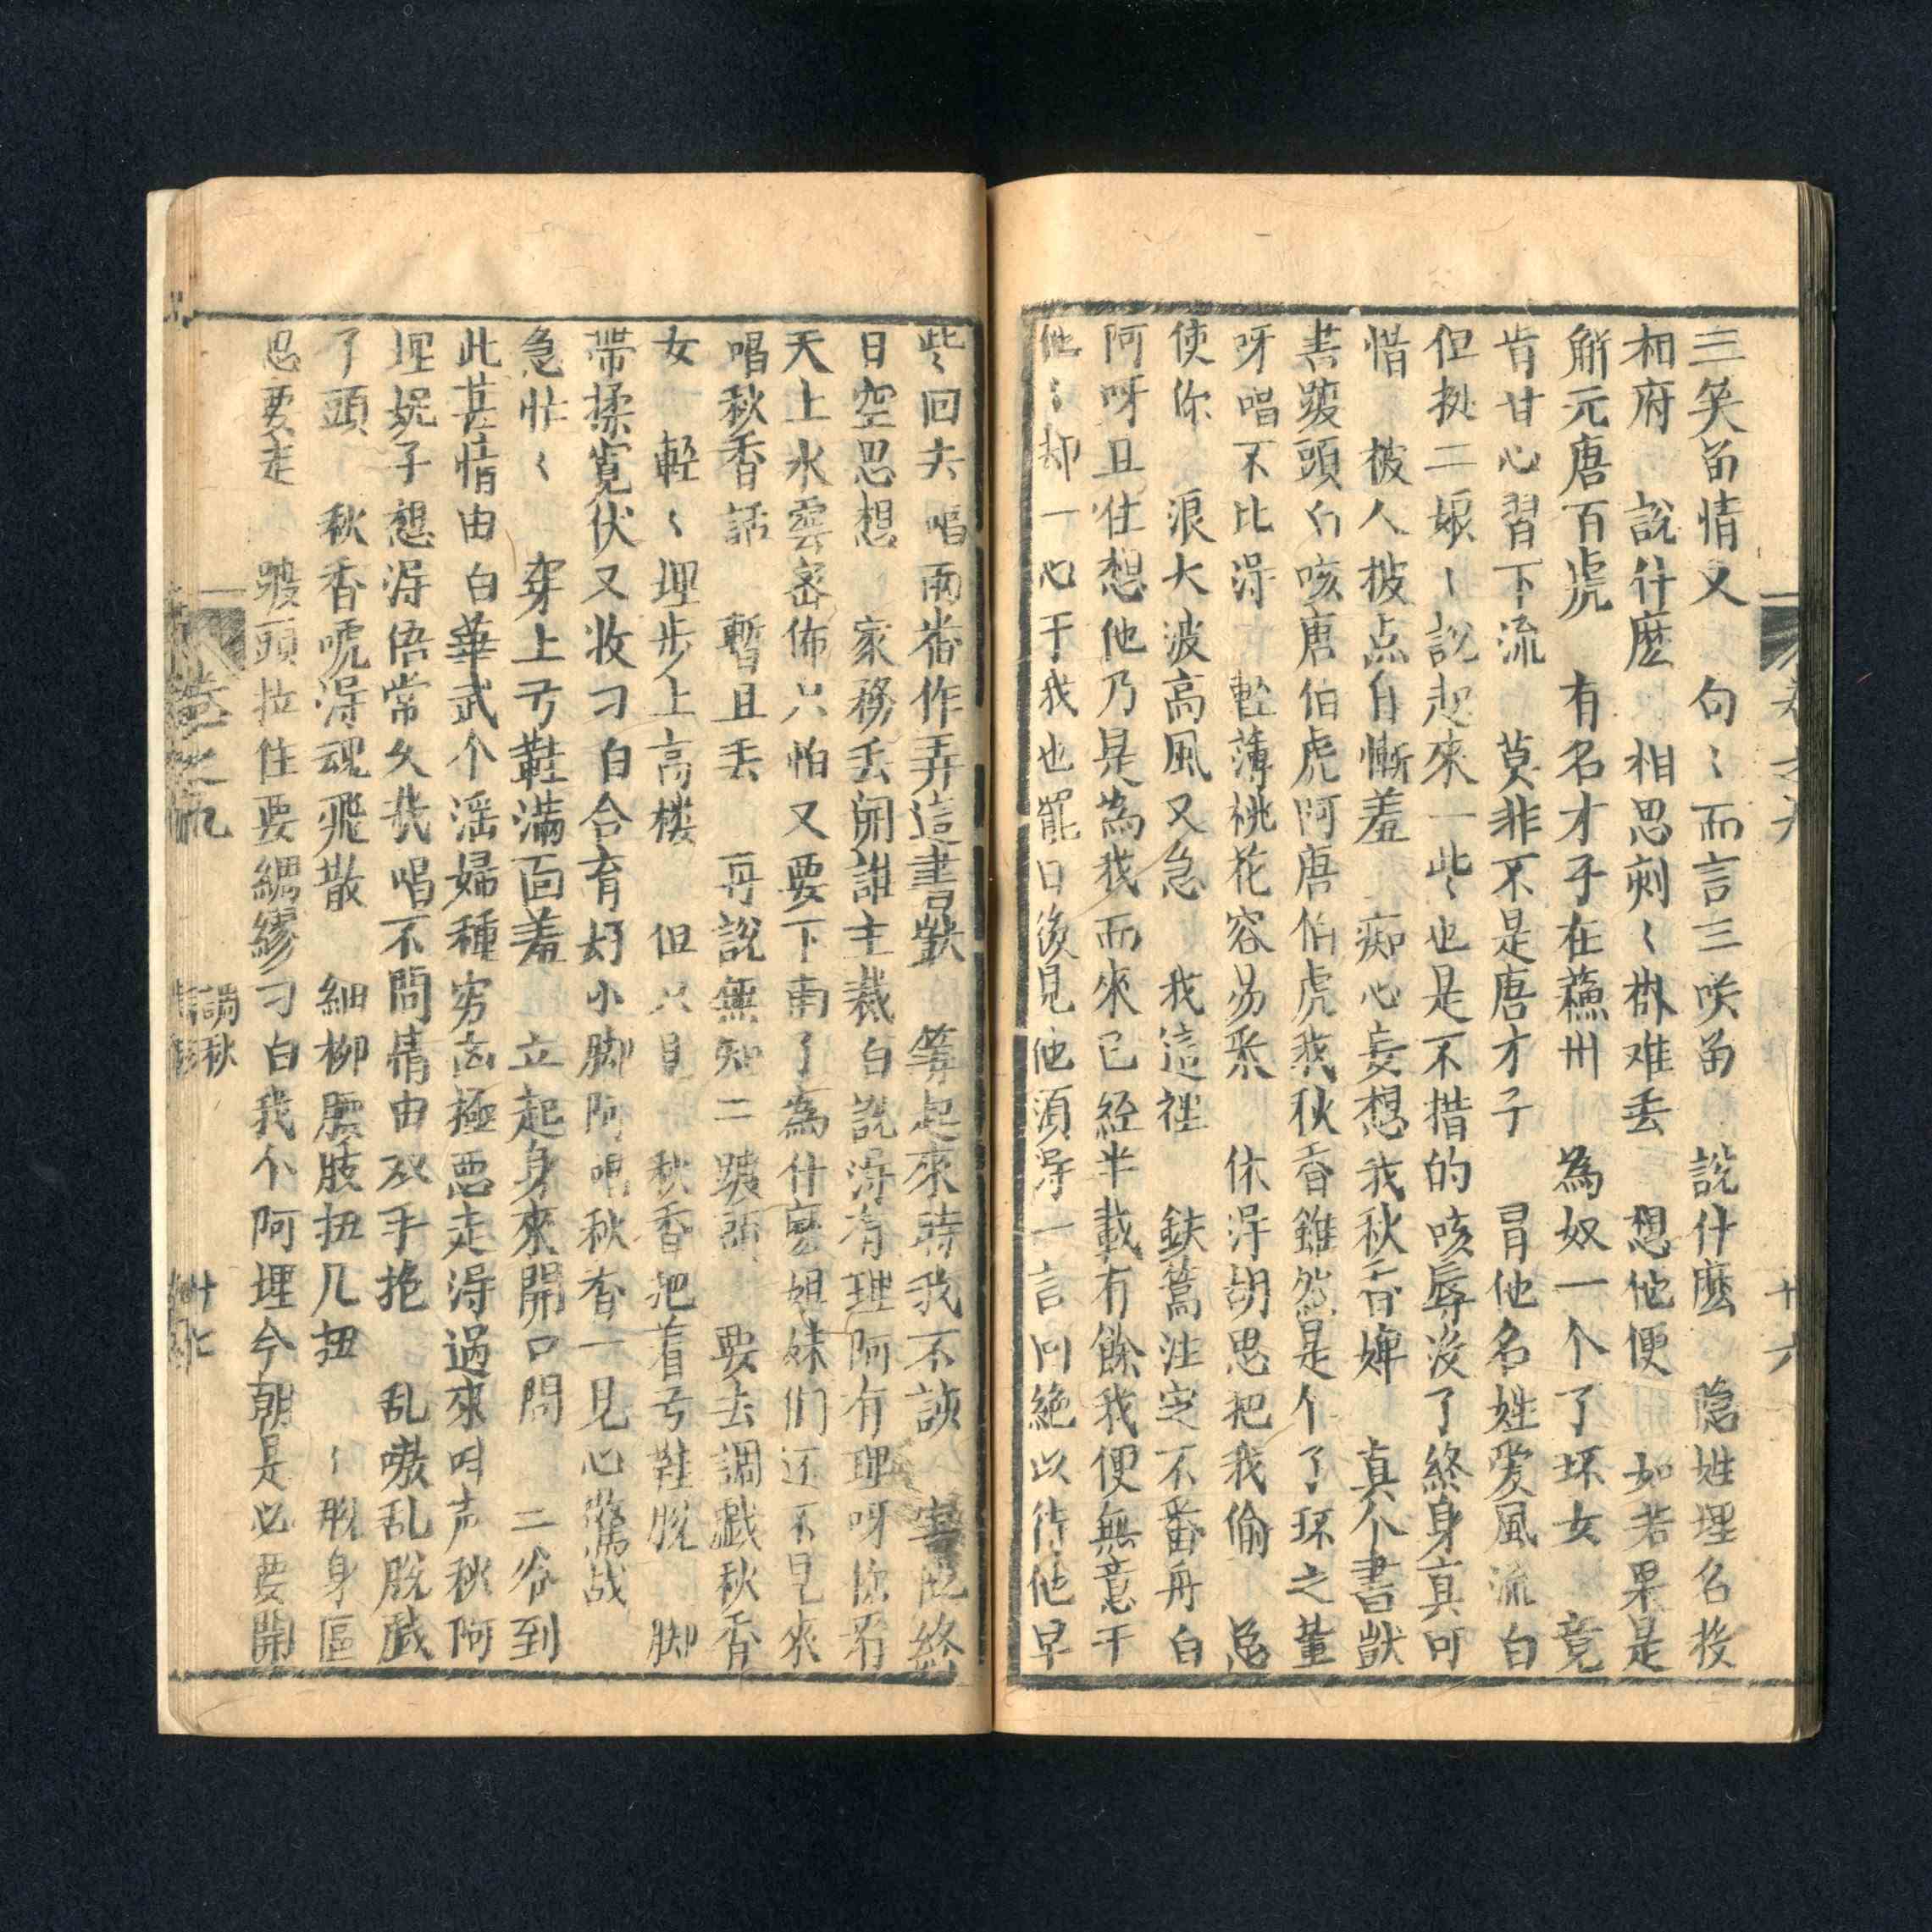 三笑畄情义　句〻而言三咲畄　說什麽　隐姓埋名投
相府　說什麽　相思刺〻𢿙难丢　想他便　如若果是
觧元唐百虎　有名才子在蘓州　為奴一个了环女　竟
肯甘心習下流　莫非不是唐才子　冒他名姓愛風流白
但挑二娘〻說起來一些〻也是不措的咳辱没了終身真可
惜　被人披点自慚羞　痴心妄想我秋香婢　真个書獃
書踱頭〻咳唐伯虎阿唐伯虎我秋香雖然是个了环之輩
呀唱不比淂　輕薄桃花容昜采　休淂胡思把我偷　急
使你　浪大波高風又急　我這裡　鉄篙注定不番舟白
阿呀且住想他乃是為我而來已経半載有餘我便無意于
他〻却一心于我也罷日後見他須淂一言囬絶以待他早
些〻囬去唱兩畨作弄這書獃　等起來時我不該　害伱終
日空思想　家務丢開誰主裁白說淂有理阿有理呀你看
天上水雲宻佈只怕又要下雨了為什麽姐妹们还不見來
唱秋香話　暫且丢　再說無知二踱頭　要去調戲秋香
女　輕〻埋步上高楼　但只見　秋香把着弓鞋脫　脚
帶揉寛伏又收刁白合育好小脚阿唱秋香一見心驚战
急忙〻　穿上弓鞋满面羞　立起身來開口問　二爷到
此甚情由白華武个滛婦種穷凶極惡走淂過來呌声秋阿
埋妮子想淂伍常久哉唱不問情由双手抱　乱嗷乱脫戲
了頭　秋香唬淂魂飛散　細柳腰肢扭几扭　〻脫身𨈭
忍要走　踱頭拉住要綢繆刁白我个阿埋今朝是必要開
卷之九
調秋
廿七